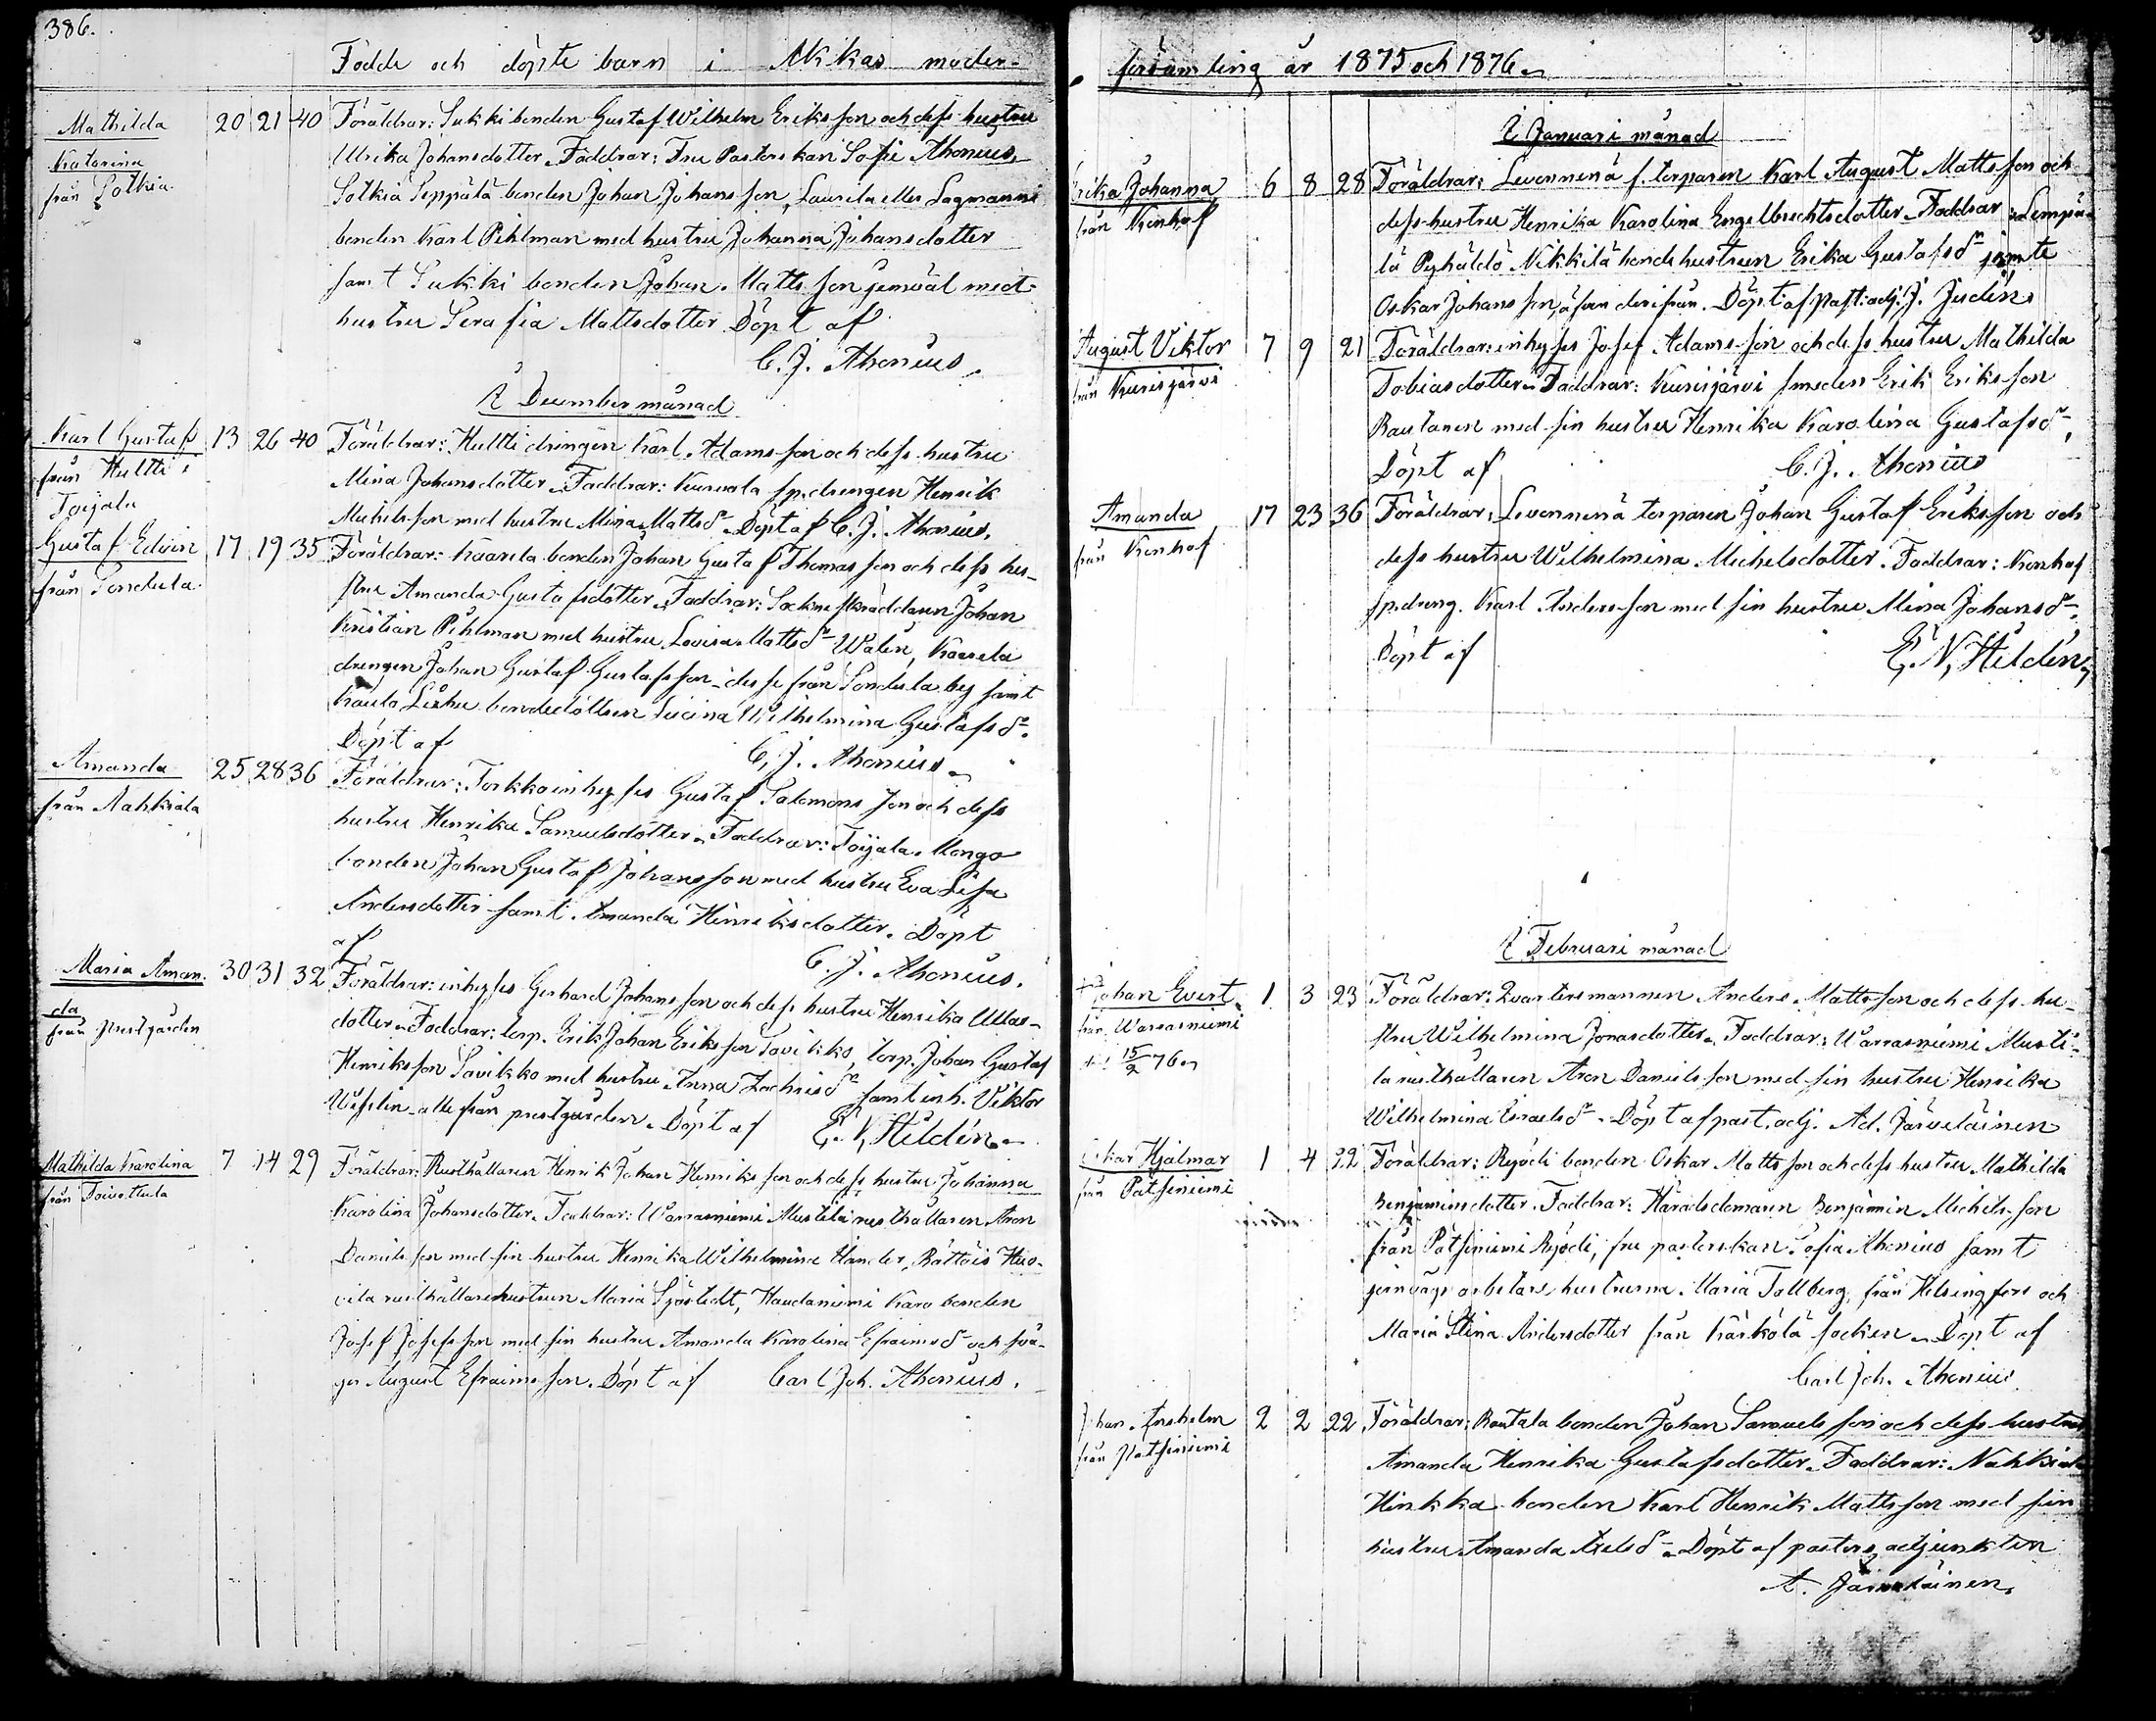 386.
Födde och döpte barn i Akkas moder-
Mathilda
Katarina
från Sotkia.
20 21 40
Föräldrar: Sukki bonden Gustaf Wilhelm Eriksson och dess hustru
Ulrika Johansdotter. Faddrar: Fru Pastorskan Sofie Ahonius,
Sotkia Seppälä bonden Johan Johansson, Laurila eller Lagmanni
bonden Karl Pihlman med hustru Johanna Johansdotter
samt Sukki bonden Johan Mattsson jemväl med
hustru Serafia Mattsdotter. Döpt af
C. J. Ahonius.
I December månad
Karl Gustaf
från Hultti,
Toijala
13 26 40
Föräldrar: Hultti drängen Karl Adamsson och dess hustru
Mina Johansdotter. Faddrar: sp.drengen Henrik
Michelsson med hustru Mina Mattsdr. Döpt af C. J. Ahonius.
Gustaf Edvin
från Sondula.
17 19 35
Föräldrar: Kaarela bonden Johan Gustaf Thomasson och dess hu-
stru Amanda Gustafsdotter. Faddrar: Sockneskräddaren Johan
Kristian Pihlman med hustru Lovisa Mattsdr Walen, Kaarela
drengen Johan Gustaf Gustafsson - desse från Sondula by samt
bondedottren Wilhelmina Gustafsdr.
Döpt af
C. J. Ahonius.
Amanda
från Nahkiala
25 28 36
Föräldrar: Torkko inhyses Gustaf Salomonsson och dess
hustru Henrika Samuelsdotter. Faddrar: Toijala Mongo
bonden Johan Gustaf Johansson med hustru Eva Lisa
Andersdotter samt Amanda Henriksdotter. Döpt
af
C. J. Ahonius.
Maria Aman-
da
från Prestgården
30 31 32
Föräldrar: inhyses Gerhard Johansson och dess hustru Henrika
dotter. Faddrar: torp. Erik Johan Eriksson Savikko, torp. Johan Gustaf
Henriksson Savikko med hustru Anna Zachrisdr samt inh. Viktor
alle från prestgården. Döpt af E. N. Hildén.
Mathilda Karolina
från Toivottula
7 14 29
Föräldrar: Rusthållaren Henrik Johan Henriksson och dess hustru Johanna
Karolina Johansdotter. Faddrar: Warrasniemi Mustila rusthållaren Aron
Danielsson med sin hustru Henrika Wilhelmina Rättäis Huo-
vila rusthållarehustrun Maria Sjöstedt, Haudaniemi Karo bonden
Josef Josefsson med sin hustru Amanda Karolina Efraimsdr och svå-
ger August Efraimsson. Döpt af Carl Joh. Ahonius.
församling år 1875 och 1876.
I Januari månad
Erika Johanna
från Konhof
6 8 28
Föräldrar: Levonnenä f. torparen Karl August Mattsson och
dess hustru Henrika Karolina Engelbrechtsdotter. Faddrar: Lempää-
lä Pyhältö Nikkilä bondehustrun Erika Gustafsdr jämte
Oskar Johansson, äfven derifrån. Döpt af past. adj. J. Judén.
August Viktor
från Kurisjärvi
7 9 21
Föräldrar: inhyses Josef Adamsson och dess hustru Mathilda
Tobiasdotter. Faddrar: Kurisjärvi smeden Erik Eriksson
Rautanen med sin hustru Henrika Karolina Gustafsdr.
Döpt af C. J. Ahonius
Amanda
från Konhof
17 23 36
Föräldrar: Levonnenä torparen Johan Gustaf Eriksson och
dess hustru Wilhelmina Michelsdotter. Faddrar: Konhof
sp.dreng. Karl Andersson med sin hustru Mina Johansdr.
Döpt af E. N. Hildén.
I Februari månad
Johan Evert
från Warrasniemi
† 15/2 76.
1 3 23
Föräldrar: Qvartersmannen Anders Mattsson och dess hu-
stru Wilhelmina Jonasdotter. Faddrar: Warrasniemi Musti-
la rusthållaren Aron Danielsson med sin hustru Henrika
Wilhelmina Israelsdr. Döpt af past. adj. Ad. Järveläinen
Oskar Hjalmar
från Pätsiniemi
1 4 22
Föräldrar: Ryödi bonden Oskar Mattsson och dess hustru Mathilda
Benjaminsdotter. Faddrar: Häradsdomaren Benjamin Michelsson
från Pätsiniemi Ryödi, fru pastorskan Sofia Ahonius samt
jernvägs arbetare hustrurna Maria Tallberg från Helsingfors och
Maria Stina Andersdotter från Kärkölä socken. Döpt af
Carl Joh. Ahonius
Johan Anshelm
från Pätsiniemi
2 2 22
Föräldrar: Rautala bonden Johan Samuelsson och dess hustru
Amanda Henrika Gustafsdotter. Faddrar: Nahkiala
Hinkka bonden Karl Henrik Mattsson med sin
hustru Amanda Axelsdr. Döpt af pastors adjunkten
A. Järveläinen.